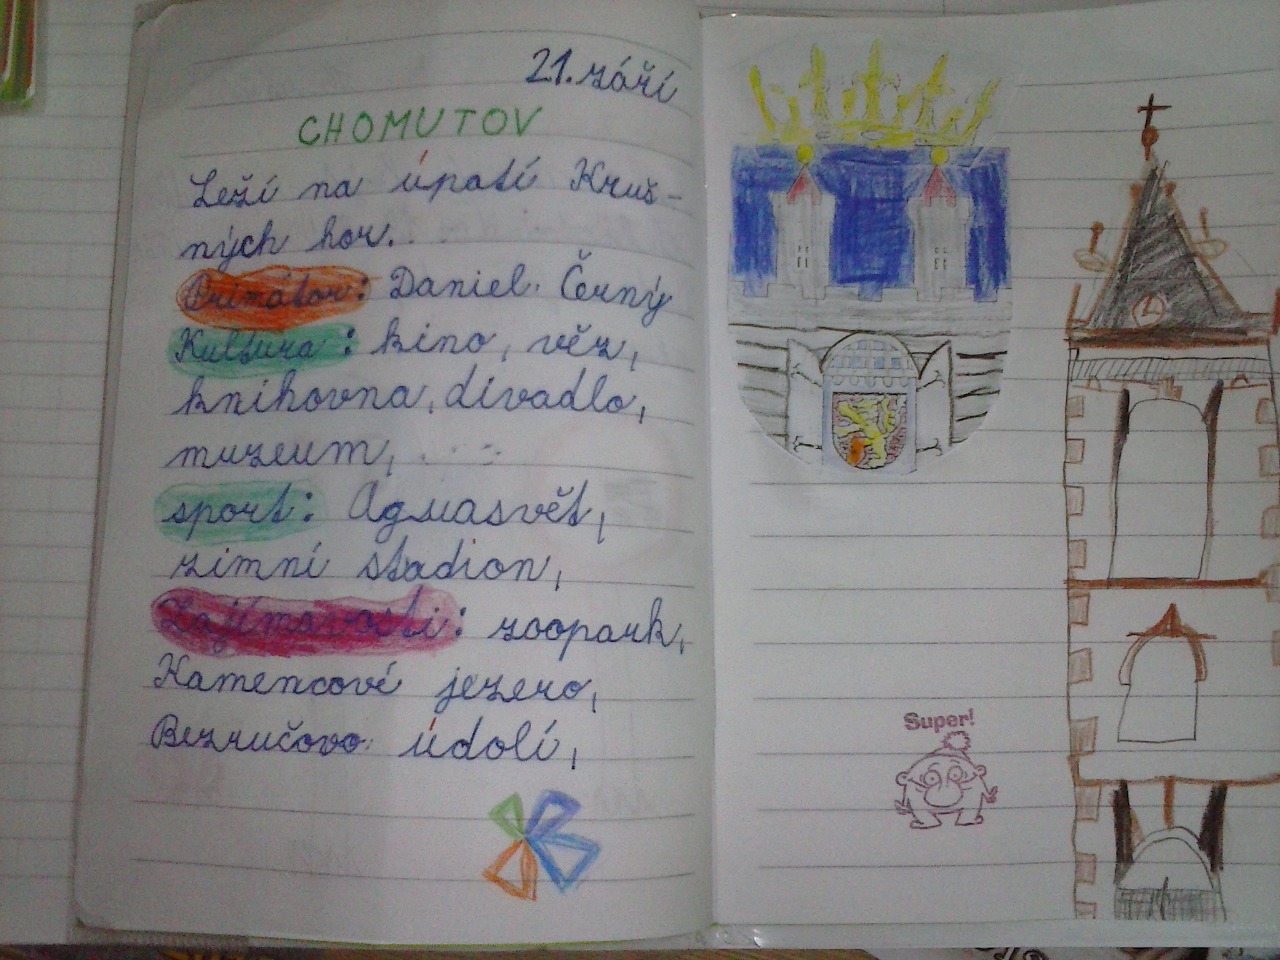 21. září
CHOMUTOV
Leží na úpatí Kruš-
ných hor.
Primátor: Daniel Černý
Kultura: kino, věz,
knihovna, divadlo,
muzeum,
sport: Aquasvět,
zimní stadion,
Zajímavosti: zoopark,
Kamencové jezero,
Bezručovo údolí,
Super!